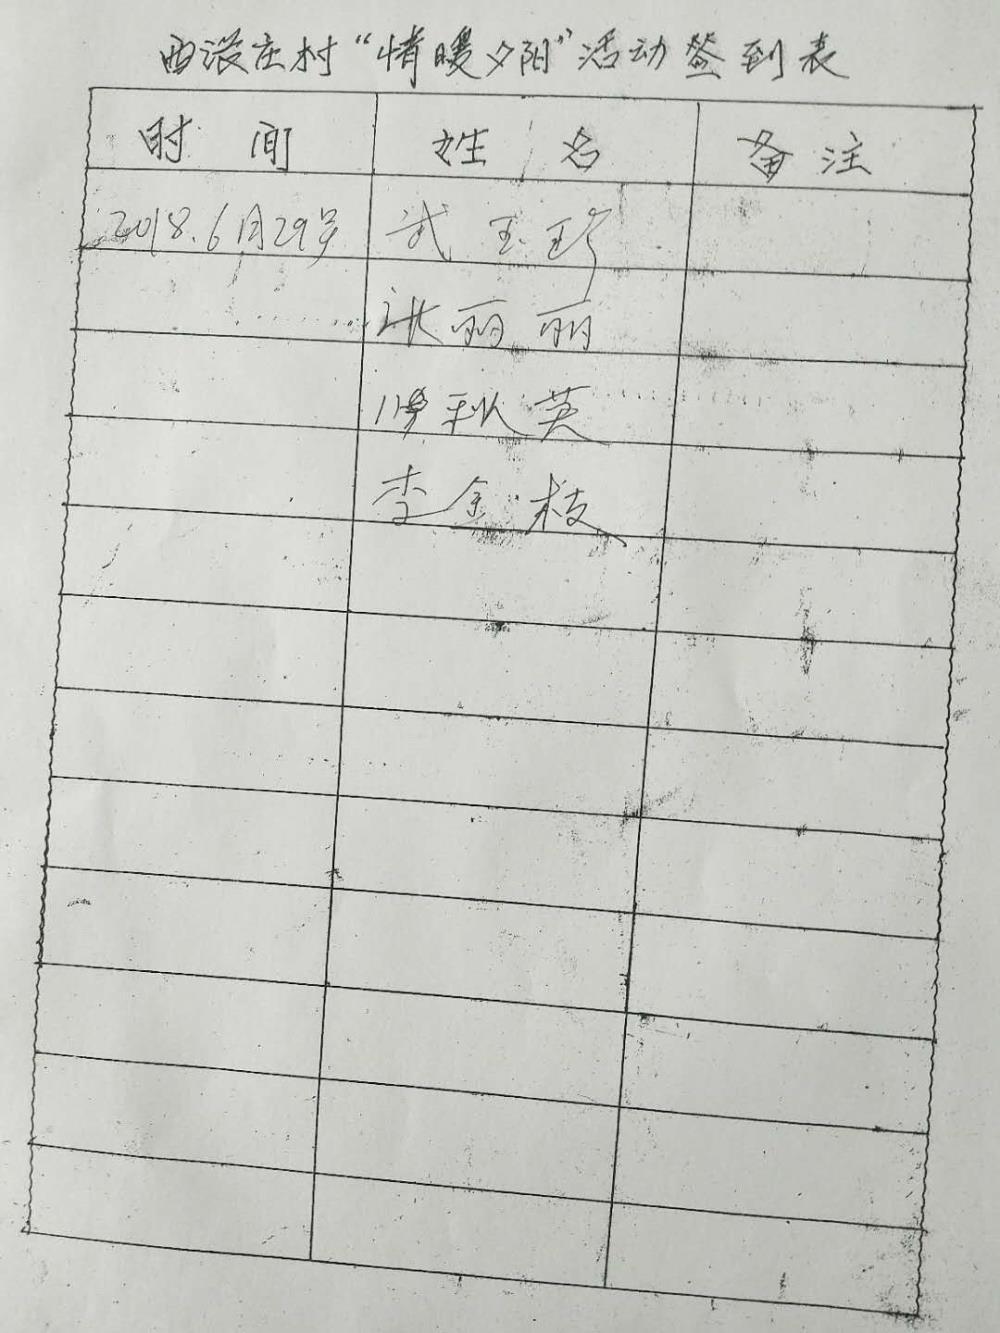 西滚庄村“情暖夕阳”活动签到表
时间 姓名 备注
2018.6月29号 武玉珍
张丽丽
秋英
李金枝